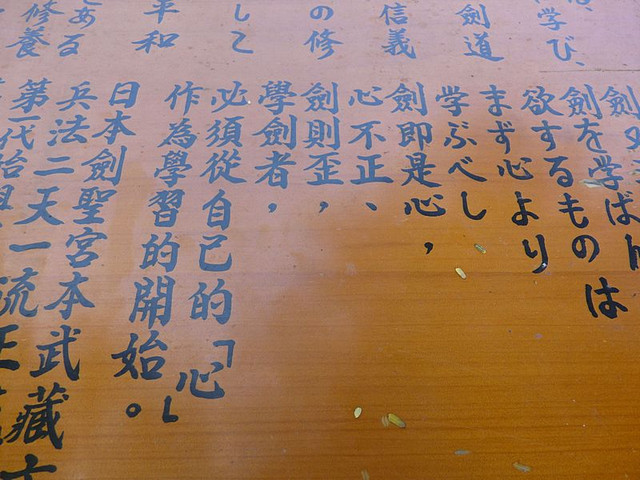 学び、
劍道
信義
の修
して
平和
ある
修養
劍
劍を学ばん
欲するものは
まず心より
学ぶべし
劍即是心，
心不正、
劍則歪，
學劍者，
必須從自己的「心」
作為學習的開始。
日本劍聖宮本武藏
兵法二天一流
第一代